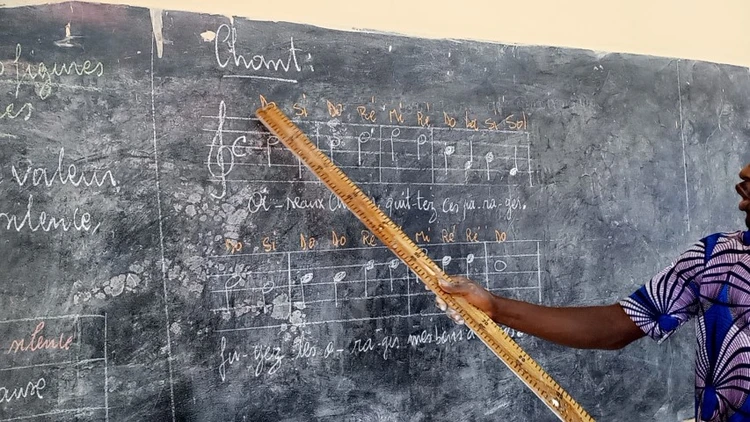 figures
es
valeur
silence,
silence
ause
Chant:
Do Si Do Ré Mi Ré Do La Si Sol
C
Oi-seaux quit-tez ces pa-ra-ges.
Do Si Do Do Ré Mi Ré Ré Do
fu-yez les o-ra-ges mes bons